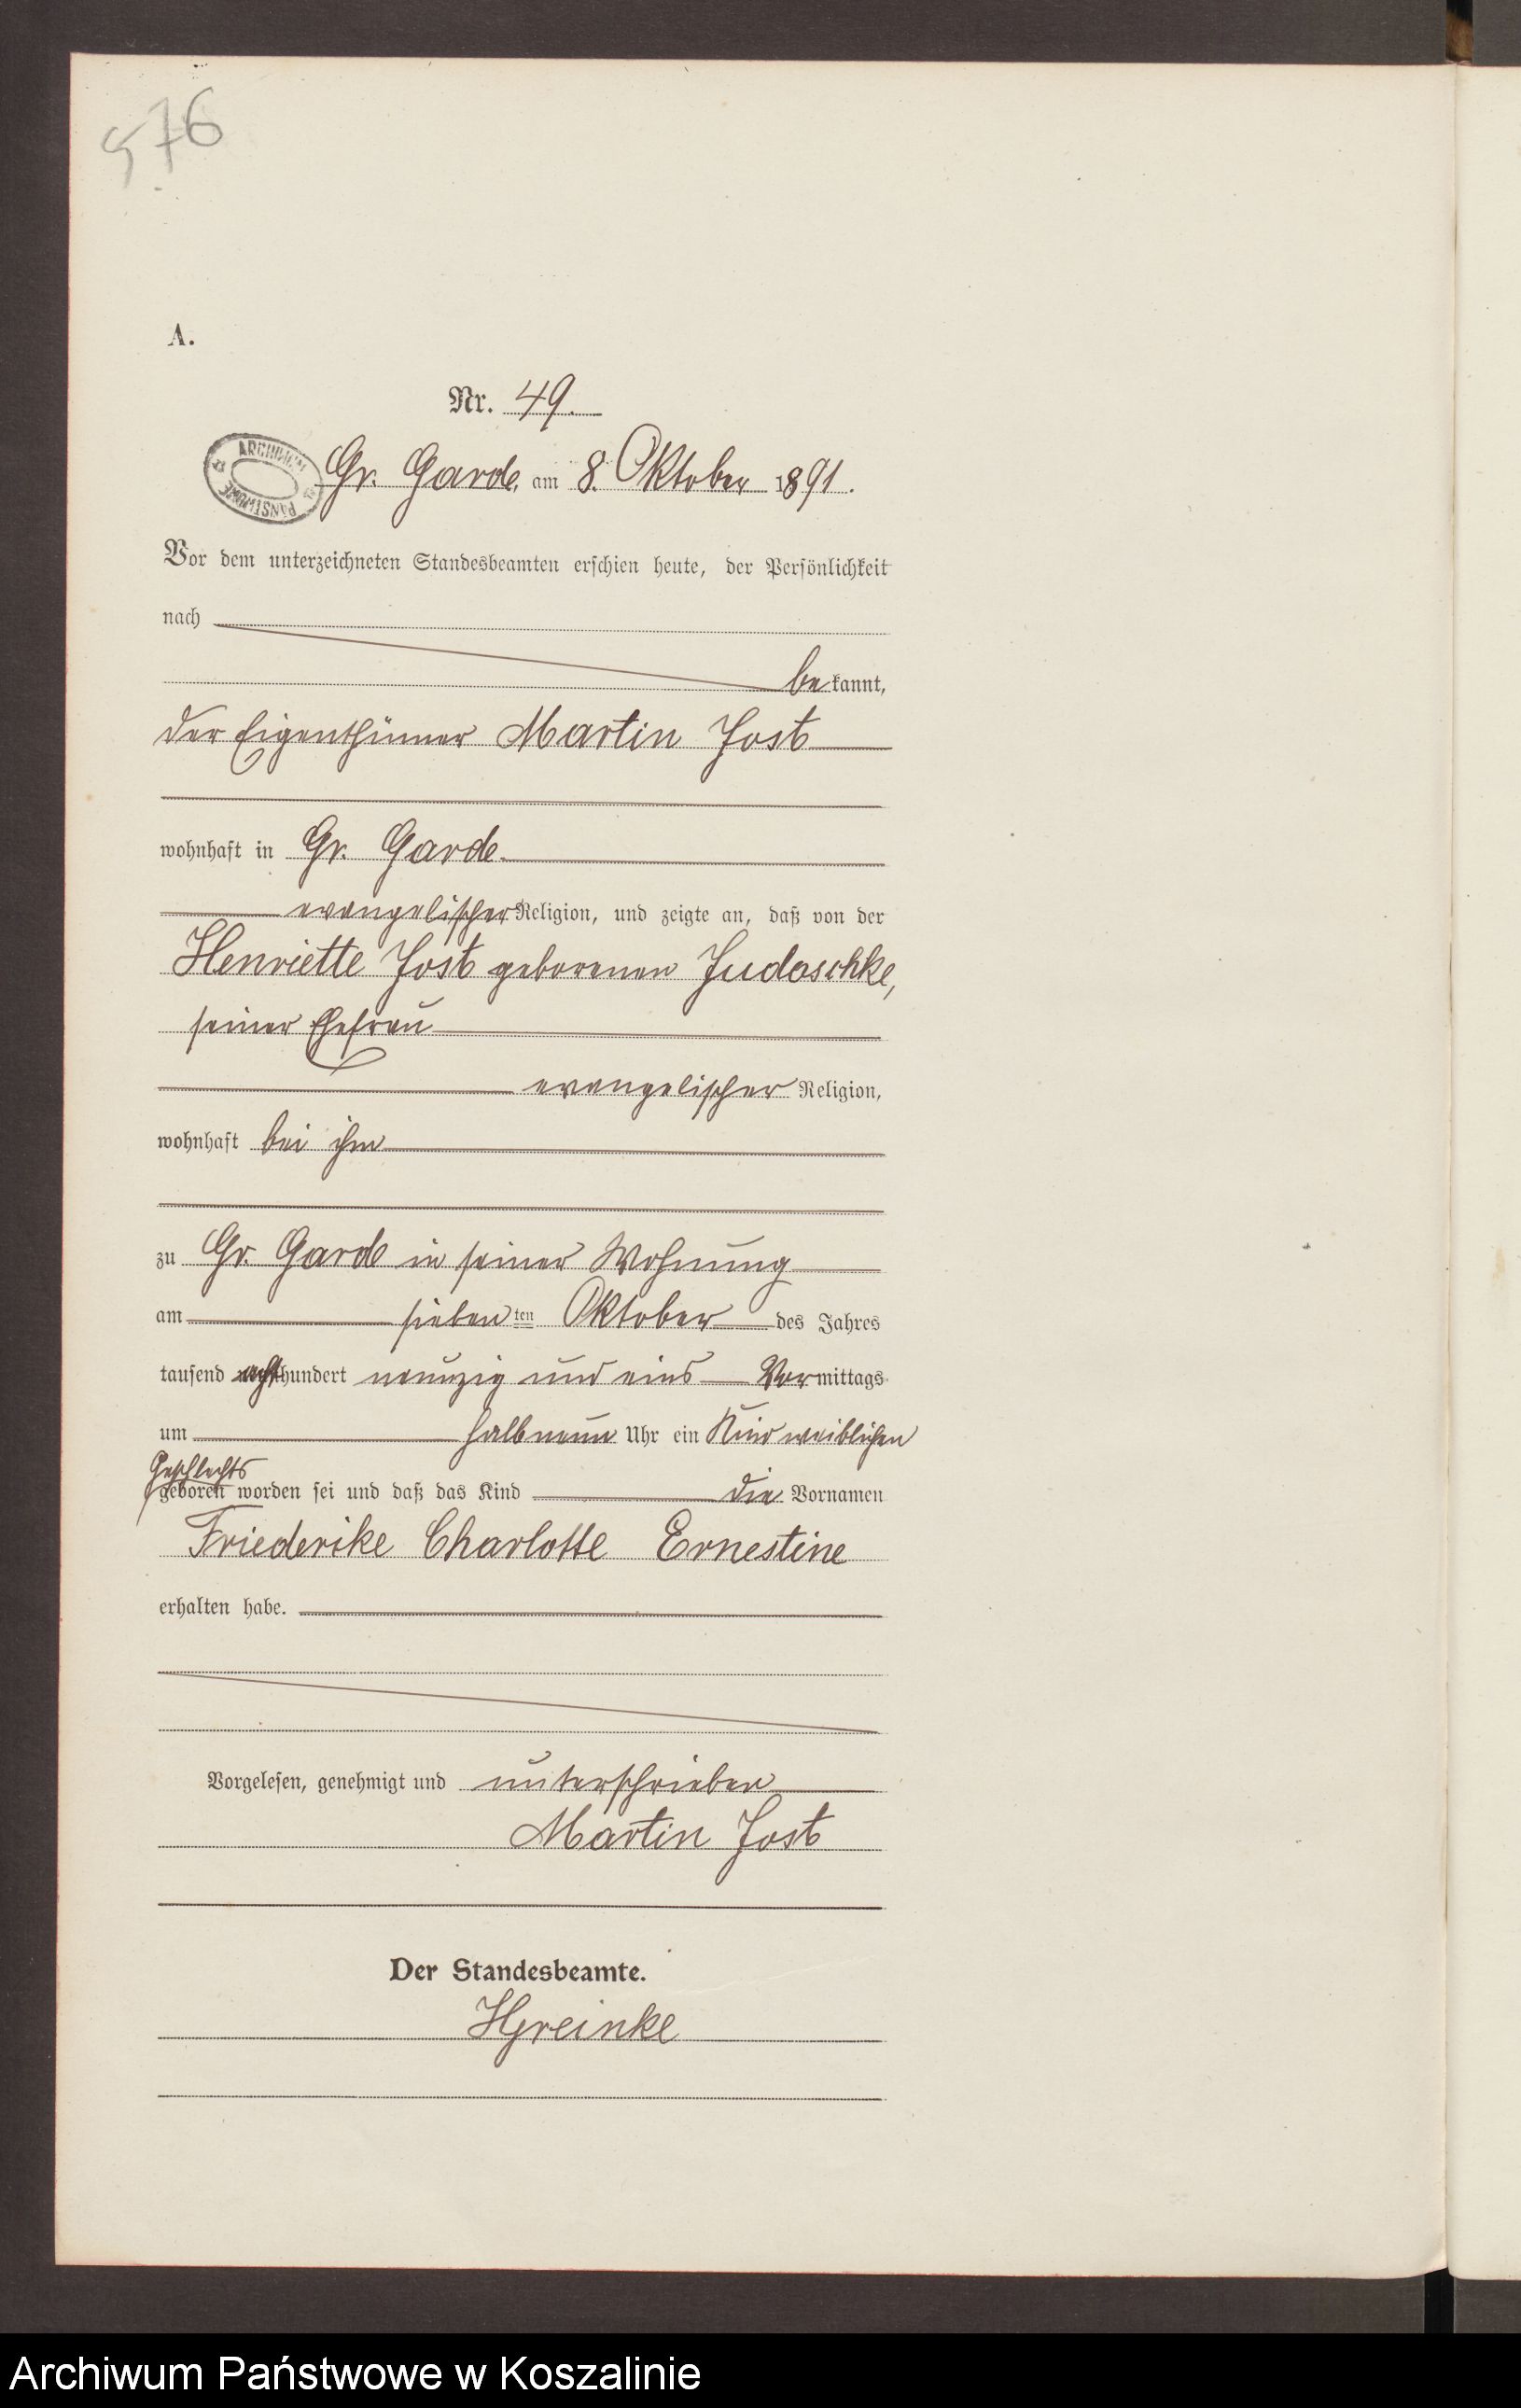 576
A.
Nr. 49.
ARCHIWUM PAŃSTWOWE
Gr. Garde, am 8. Oktober 1891.
Vor dem unterzeichneten Standesbeamten erschien heute, der Persönlichkeit
nach
bekannt,
der Eigenthümer Martin Jost
wohnhaft in Gr. Garde
evangelischer Religion, und zeigte an, daß von der
Henriette Jost geborenen Judaschke,
seiner Ehefrau
evangelischer Religion,
wohnhaft bei ihm
zu Gr. Garde in seiner Wohnung
am siebenten Oktober des Jahres
tausend achthundert neunzig und eins Vormittags
um halb neun Uhr ein Kind weiblichen
Geschlechts
geboren worden sei und daß das Kind die Vornamen
Friederike Charlotte Ernestine
erhalten habe.
Vorgelesen, genehmigt und unterschrieben
Martin Jost
Der Standesbeamte.
HGreinke
Archiwum Państwowe w Koszalinie